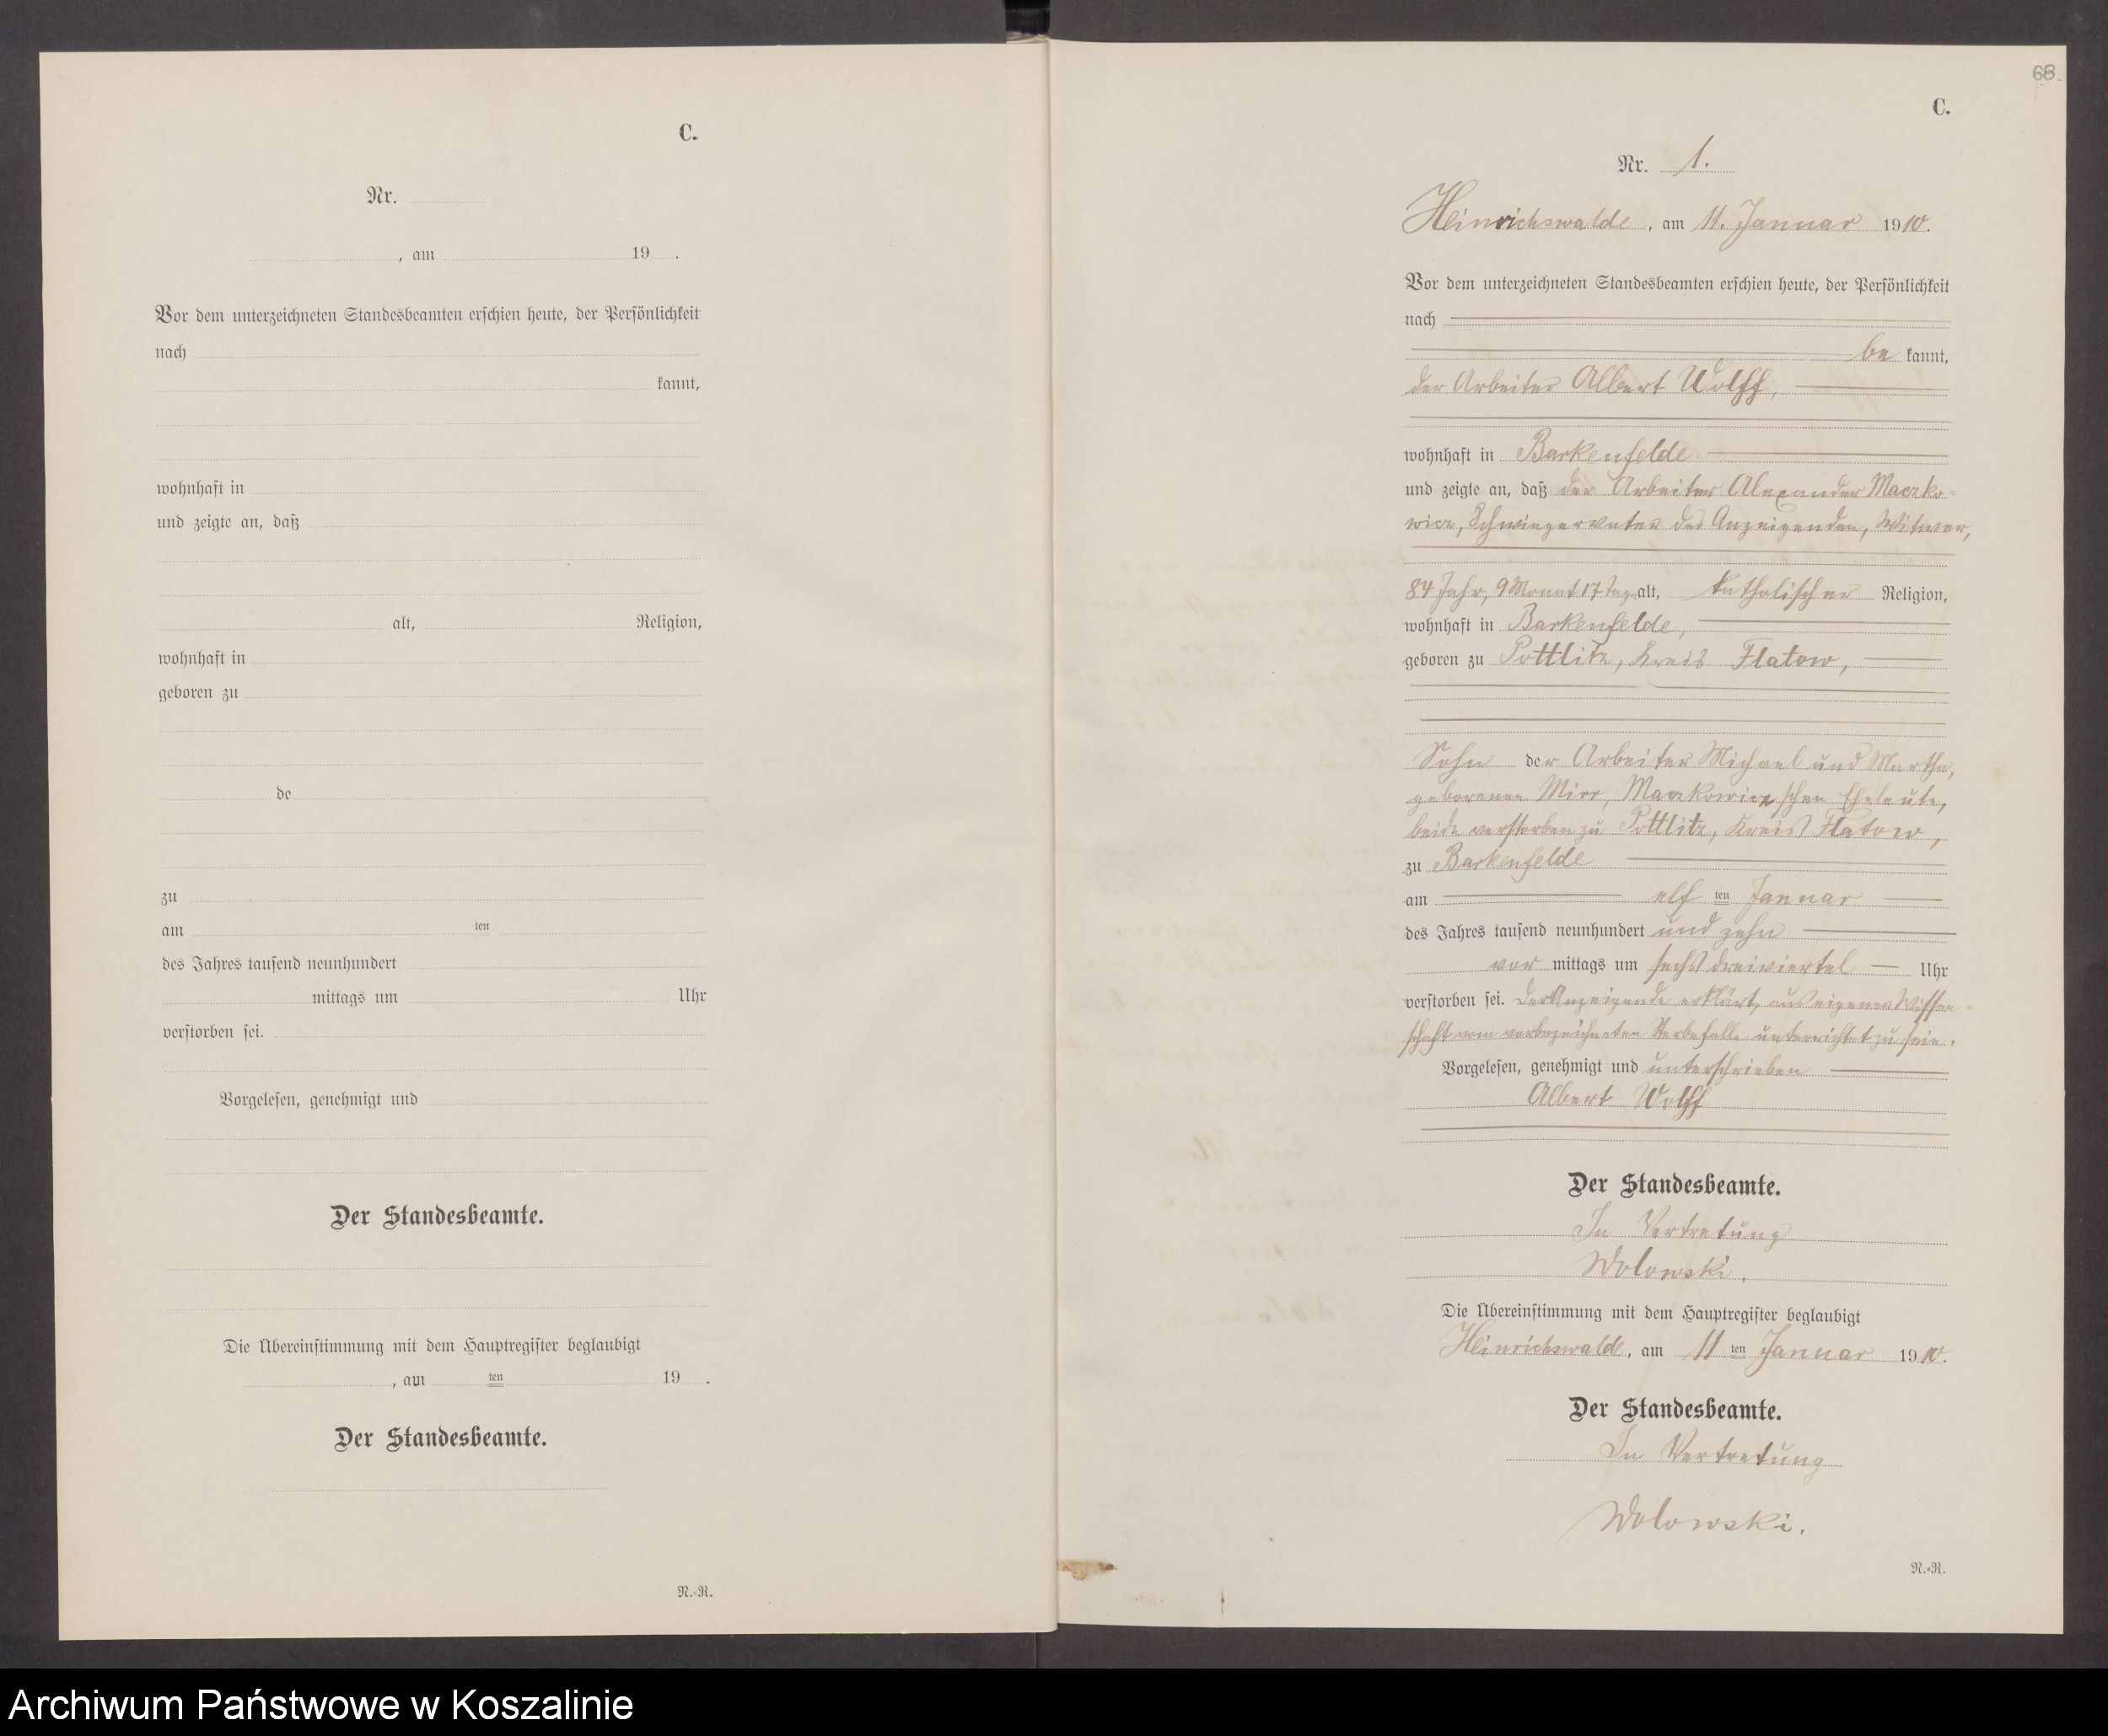 C.
Nr.
, am 19 .
Vor dem unterzeichneten Standesbeamten erschien heute, der Persönlichkeit
nach
kannt,
wohnhaft in
und zeigte an, daß
alt, Religion,
wohnhaft in
geboren zu
de
zu
am ten
des Jahres tausend neunhundert
mittags um Uhr
verstorben sei.
Vorgelesen, genehmigt und
Der Standesbeamte.
Die Übereinstimmung mit dem Hauptregister beglaubigt
, am ten 19 .
Der Standesbeamte.
N.-R.
68.
C.
Nr. 1.
Heinrichswalde, am 11. Januar 1910.
Vor dem unterzeichneten Standesbeamten erschien heute, der Persönlichkeit
nach
be kannt,
der Arbeiter Albert Wolff,
wohnhaft in Barkenfelde
und zeigte an, daß der Arbeiter Alexander Maczko-
wicz, Schwiegervater des Anzeigenden, Witwer,
84 Jahr, 9 Monat 17 Tage alt, katholischer Religion,
wohnhaft in Barkenfelde,
geboren zu Pottlitz, Kreis Flatow,
Sohn der Arbeiter Michael und Martha,
geborenen Mirr, Maczkowicz'schen Eheleute,
beide verstorben zu Pottlitz, Kreis Flatow,
zu Barkenfelde
am elf ten Januar
des Jahres tausend neunhundert und zehn
vor mittags um sechs dreiviertel Uhr
verstorben sei. Der Anzeigende erklärt, aus eigener Wissen-
schaft vom vorbezeichneten Sterbefalle unterrichtet zu sein.
Vorgelesen, genehmigt und unterschrieben
Albert Wolff
Der Standesbeamte.
In Vertretung
Wolowski.
Die Übereinstimmung mit dem Hauptregister beglaubigt
Heinrichswalde, am 11 ten Januar 1910.
Der Standesbeamte.
In Vertretung
Wolowski.
N.-R.
Archiwum Państwowe w Koszalinie